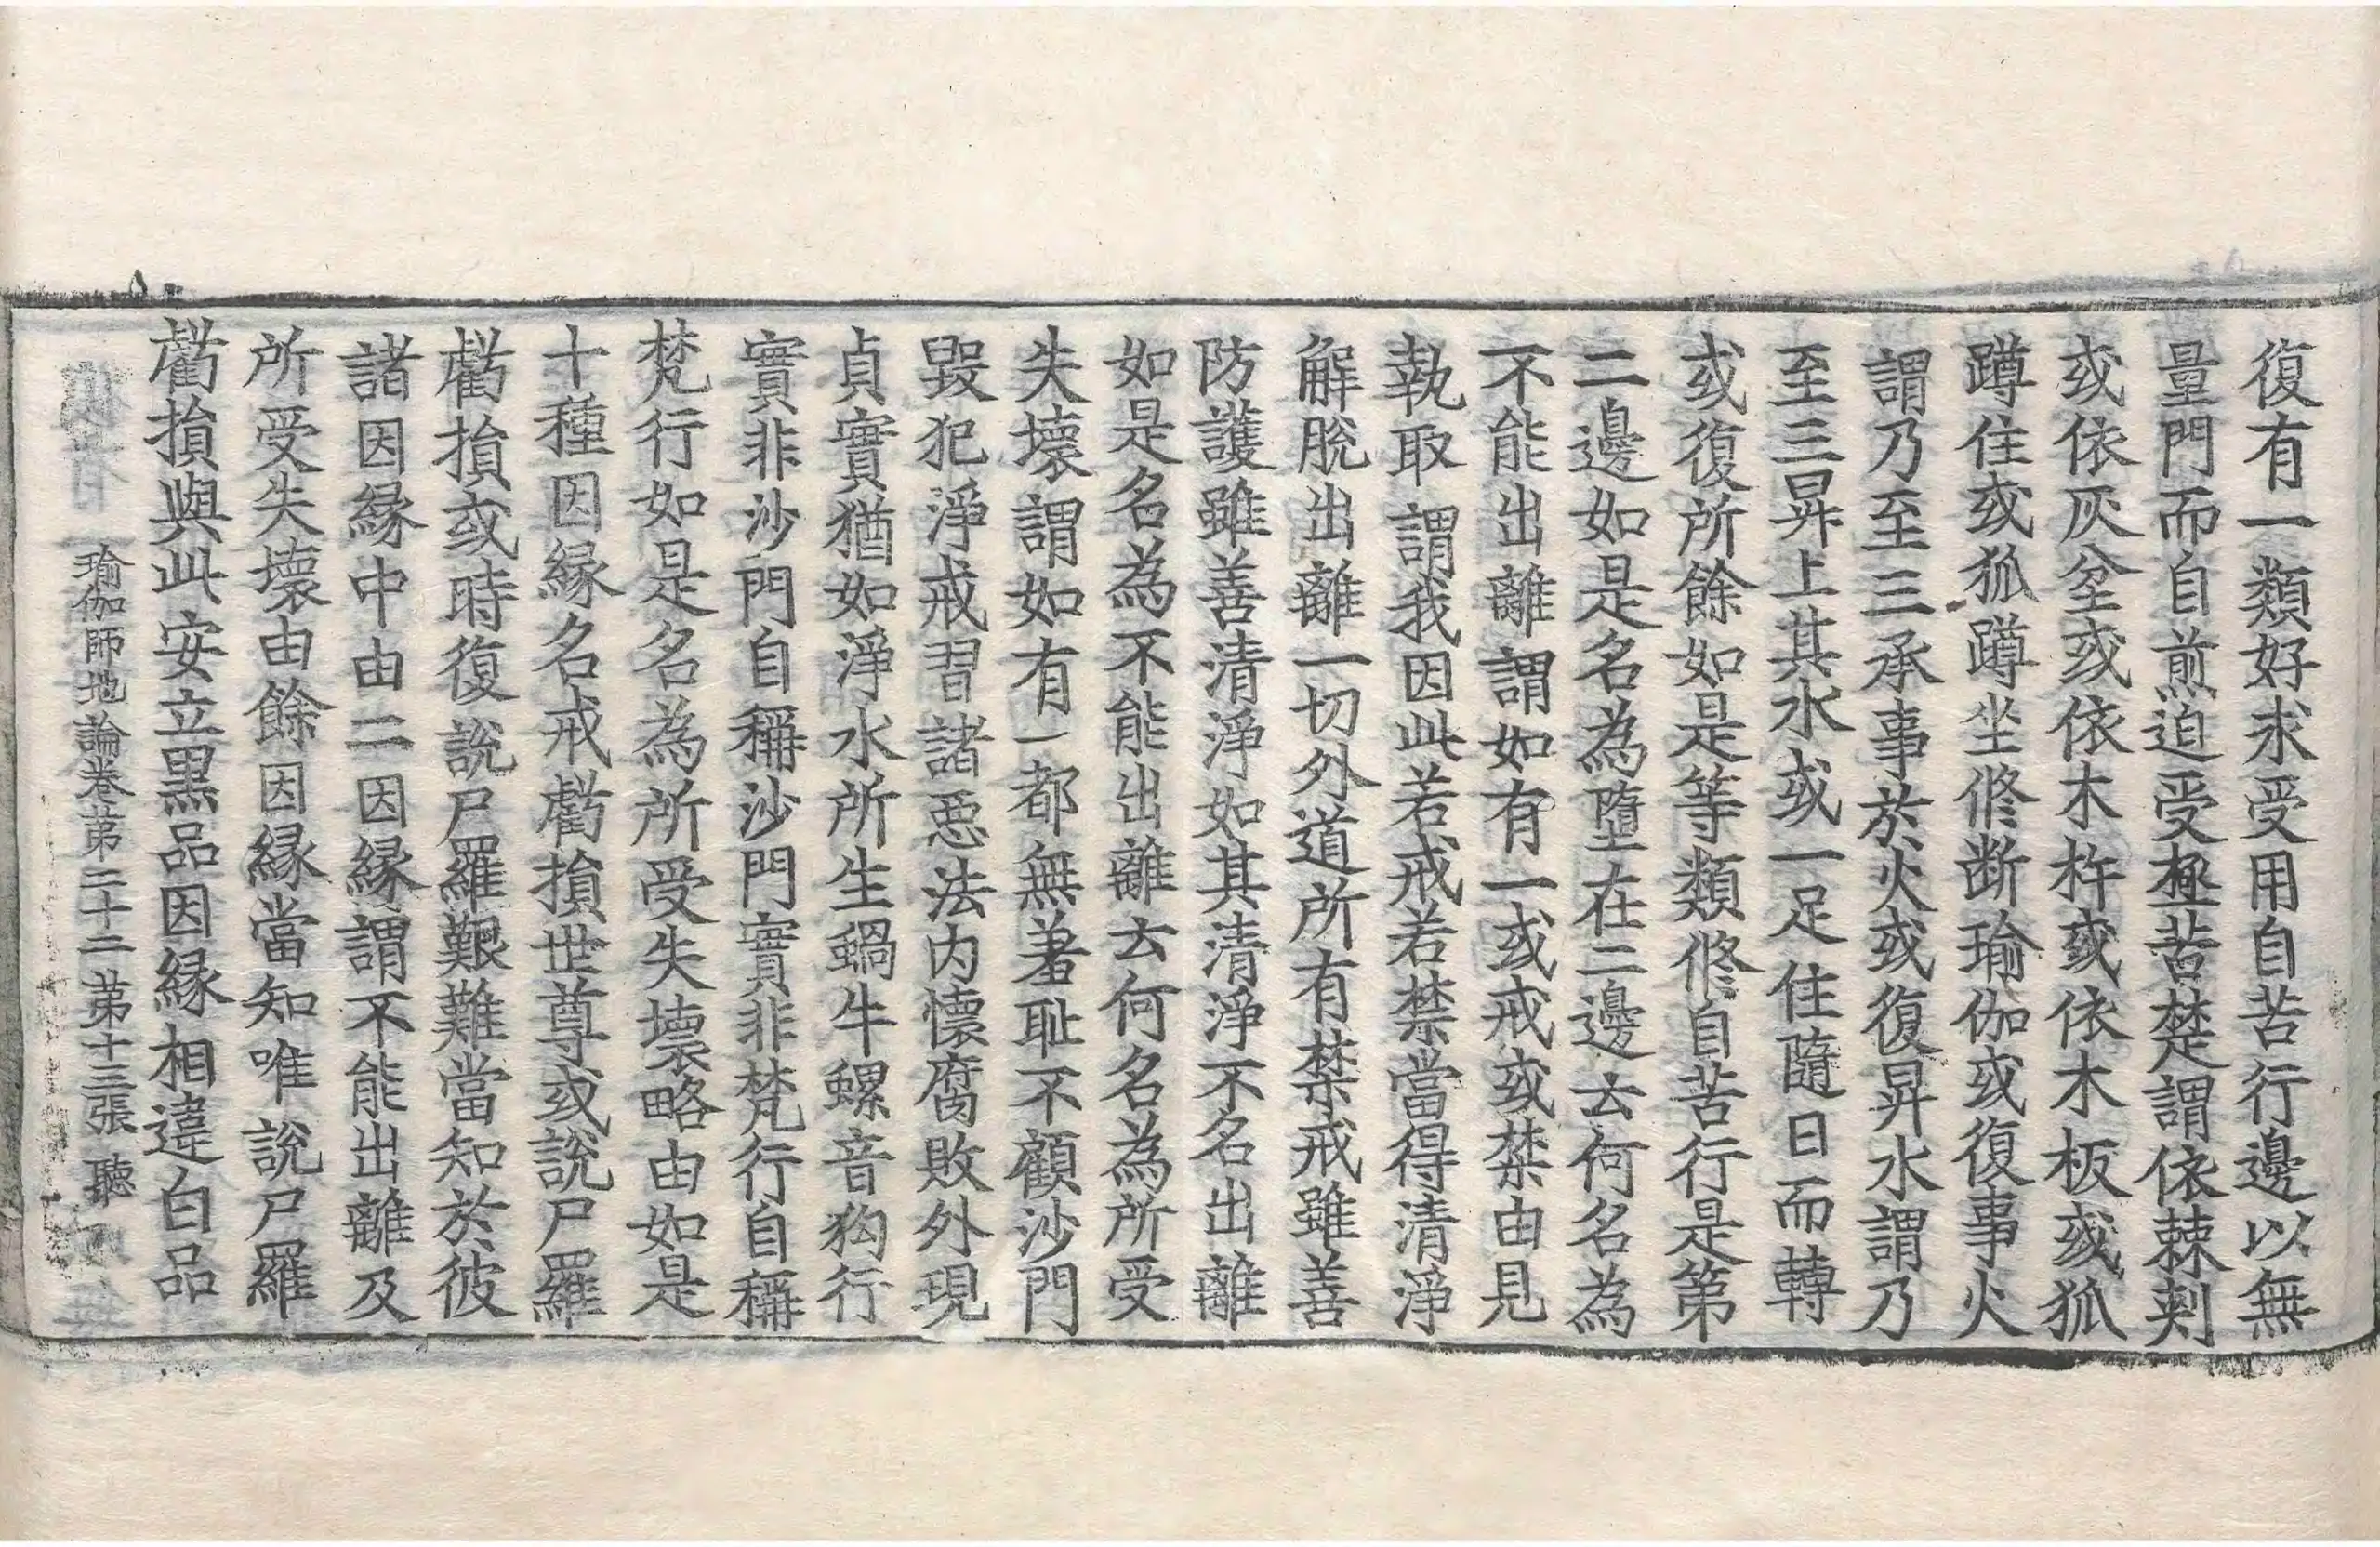 復有一類好求受用自苦行邊以無
量門而自煎迫受極苦楚謂依棘刺
或依灰坌或依木杵或依木板或狐
蹲住或狐蹲坐修断瑜伽或復事火
謂乃至三承事於火或復昇水謂乃
至三昇上其水或一足住隨日而轉
或復所餘如是等類修自苦行是第
二邊如是名為墮在二邊云何名為
不能出離謂如有一或戒或禁由見
執取謂我因此若戒若禁當得清淨
解脫出離一切外道所有禁戒雖善
防護雖善清淨如其清淨不名出離
如是名為不能出離云何名為所受
失壞謂如有一都無羞耻不顧沙門
毀犯淨戒習諸惡法内懷腐敗外現
貞實猶如淨水所生蝸牛螺音狗行
實非沙門自稱沙門實非梵行自稱
梵行如是名為所受失壞略由如是
十種因緣名戒虧損世尊或說尸羅
虧損或時復說尸羅艱難當知於彼
諸因緣中由二因緣謂不能出離及
所受失壞由餘因緣當知唯說尸羅
虧損與此安立黑品因緣相違白品
瑜伽師地論卷苐二十二　苐十三張　聽